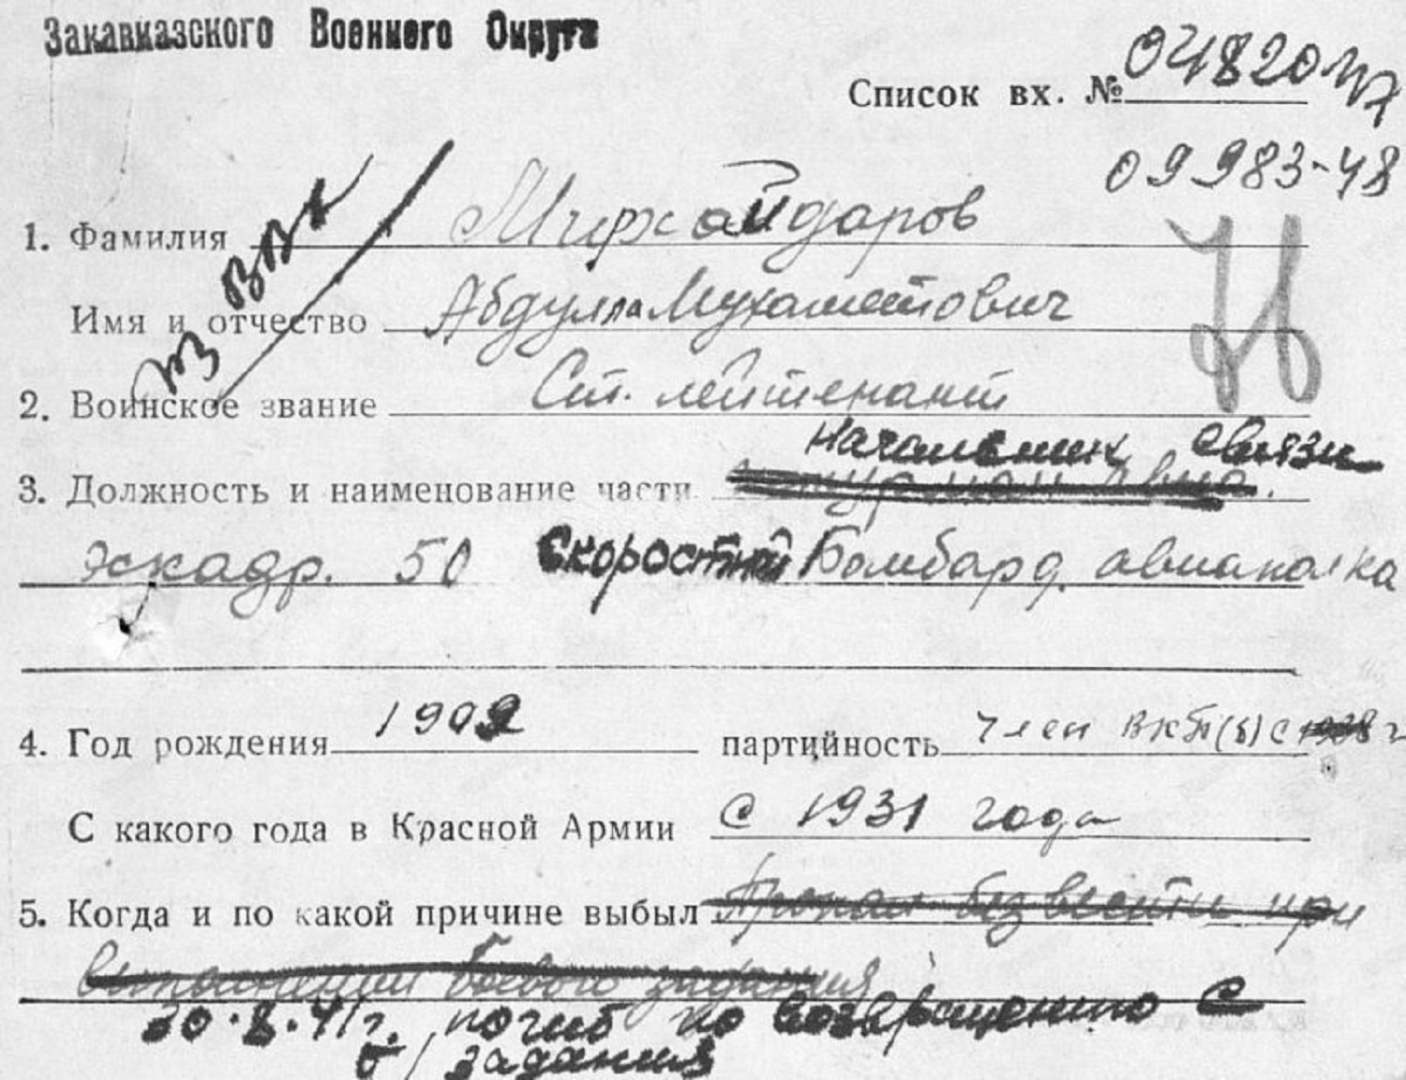 Закавказского Военного Округа
Список вх. № 04820
09983-48
из ВВК
1. Фамилия Мирхайдаров
Имя и отчество Абдулла Мухаметович
2. Воинское звание Ст. лейтенант
Начальник связи
3. Должность и наименование части штурман авиа.
эскадр. 50 Скоростной Бомбард. авиаполка
4. Год рождения 1902 партийность Член ВКП(б) с 1928 г
С какого года в Красной Армии с 1931 года
5. Когда и по какой причине выбыл Пропал без вести при
выполнении боевого задания
30.8.41 г. погиб по возвращению с
б/задания